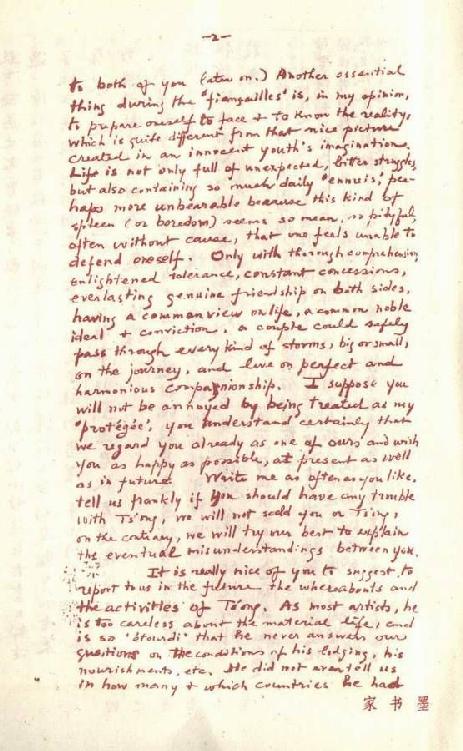 -2-
to both of you later on.) Another essential
thing during the "fiançailles" is, in my opinion,
to prepare oneself to face & to know the reality,
which is quite different from that nice picture
created in an innocent youth's imagination.
Life is not only full of unexpected, bitter struggles,
but also containing so much daily "ennuis", per-
haps more unbearable because this kind of
spleen (or boredom) seems so mean, so pitiful,
often without cause, that one feels unable to
defend oneself. Only with thorough comprehension,
enlightened tolerance, constant concessions,
everlasting genuine friendship on both sides,
having a common view on life, a common noble
ideal & conviction, a couple could safely
pass through every kind of storms, big or small,
on the journey, and live on perfect and
harmonious companionship. I suppose you
will not be annoyed by being treated as my
"protégée", you understand certainly that
we regard you already as one of ours and wish
you as happy as possible, at present as well
as in future. Write me as often as you like,
tell us frankly if you should have any trouble
with Ts'ong, we will not scold you or Ts'ong,
on the contrary, we will try our best to explain
the eventual misunderstandings between you.
It is really nice of you to suggest to
report to us in the future the whereabouts and
the activities of Ts'ong. As most artists, he
is too careless about the material life, and
is so 'étourdi' that he never answers our
questions on the conditions of his lodging, his
nourishments, etc. He did not even tell us
in how many & which countries he had
家书墨